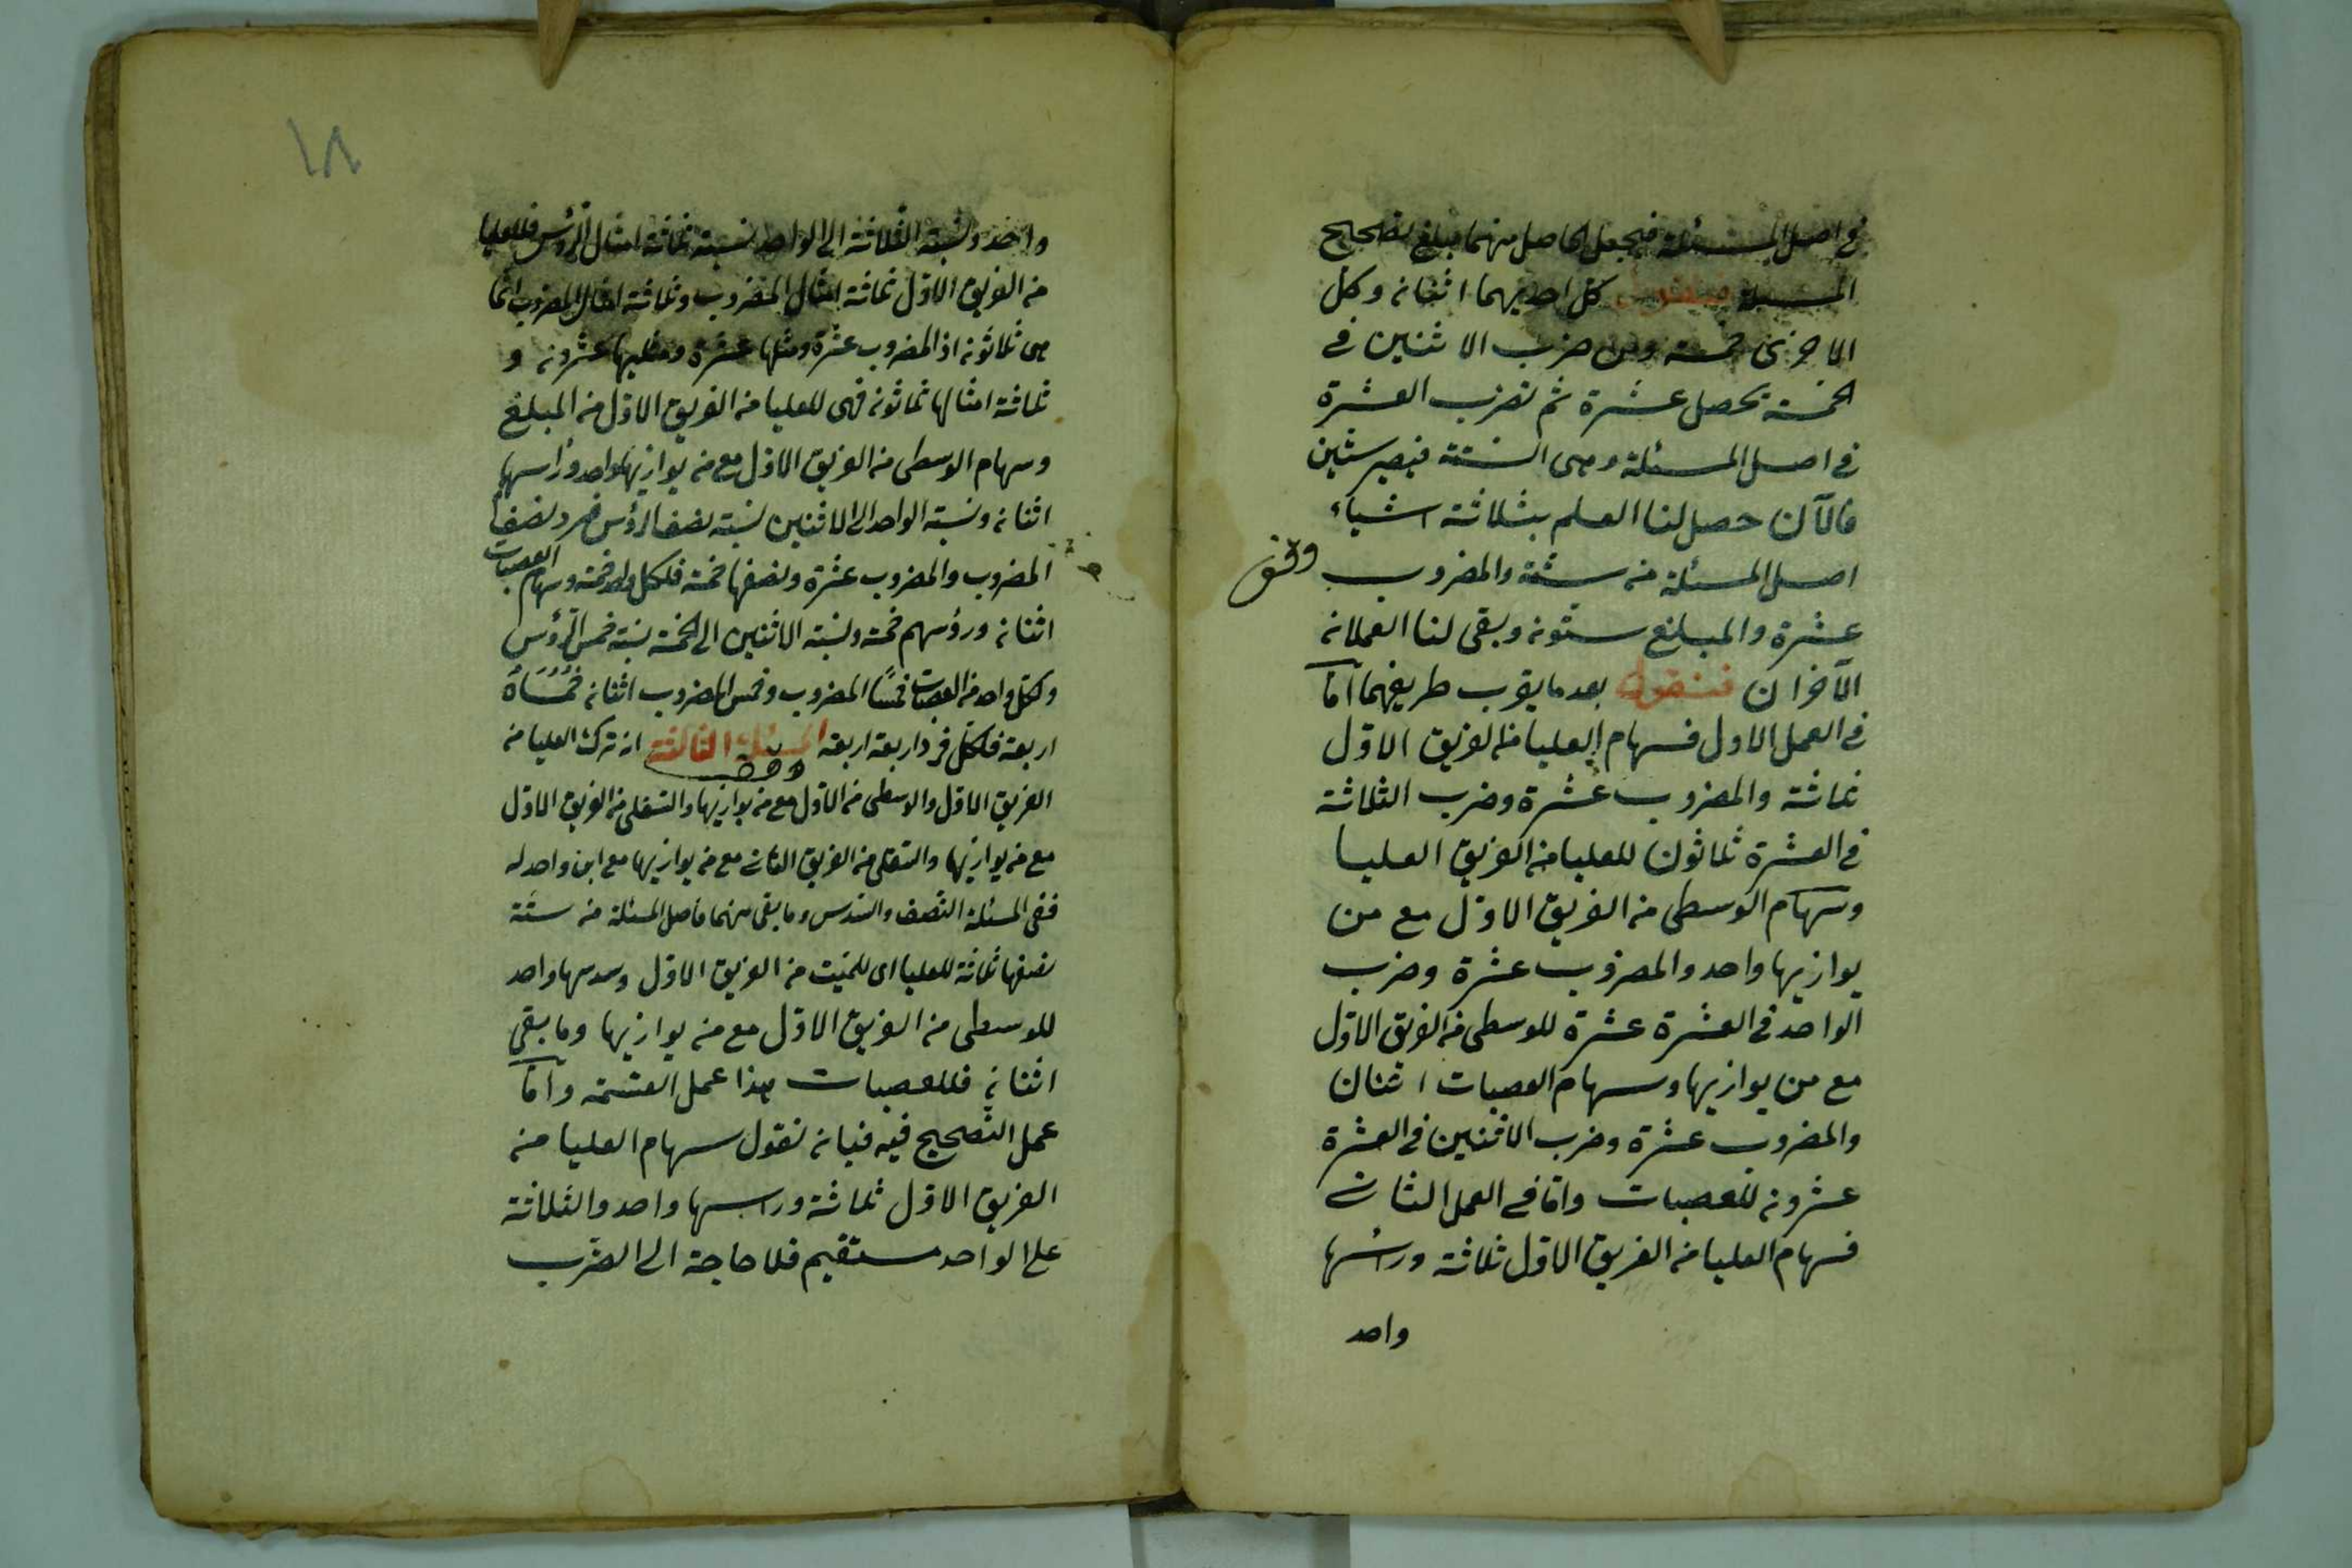 في اصل المسئلة فيجعل الحاصل منهما مبلغ تصحيح
المسئلة فنقول كل احديهما اثنانه وكل
الاخرى خمسة ومن ضرب الاثنين في
الخمسة يحصل عشرة ثم تضرب العشرة
في اصل المسئلة وهى الستة فيصير ستين
فالآن حصل لنا العلم بثلاثة اشياء
اصل المسئلة من ستة والمضروب
عشرة والمبلغ ستونه وبقى لنا العملانه
الآخران فنقول بعد ما يقرب طريقهما امّا
في العمل الاول فسهام العليا من الفريق الاوّل
ثلاثة والمضروب عشرة وضرب الثلاثة
في العشرة ثلاثون للعليا من الفريق العليا
وسهام الوسطى من الفريق الاوّل مع من
يوازيها واحد والمضروب عشرة وضرب
الواحد في العشرة عشرة للوسطى من الفريق الاوّل
مع من يوازيها وسهام العصبات اثنان
والمضروب عشرة وضرب الاثنين في العشرة
عشرونه للعصبات وامّا في العمل الثاني
فسهام العليا من الفريق الاوّل ثلاثة ورأسها
واحد
واحد ونسبة الثلاثة الى الواحد نسبة ثلاثة امثال الرؤس فللعليا
من الفريق الاوّل ثلاثة امثال المضروب وثلاثة امثال المضروب انما
هى ثلاثونه اذ المضروب عشرة ومثلها عشرة ومثليها عشرونه و
ثلاثة امثالها ثلاثونه فهى للعليا من الفريق الاوّل من المبلغ
وسهام الوسطى من الفريق الاوّل مع من يوازيها واحد ورأسها
اثنانه ونسبة الواحد الى الاثنين نسبة نصف الرؤس فرد نصف
المضروب والمضروب عشرة ونصفها خمسة فلكل واحد خمسة وسهام العصبات
اثنانه ورؤسهم خمسة ونسبة الاثنين الى الخمسة نسبة خمس الرؤس
وكل واحد من العصبات خمسا المضروب وخمس المضروب اثنانه فخمساه
اربعة فلكل فرد اربعة اربعة المسئلة الثالثة انه ترك العليا من
الفريق الاوّل والوسطى من الاوّل مع من يوازيها والسفلى من الفريق الاوّل
مع من يوازيها والسفلى من الفريق الثاني مع من يوازيها مع ابن واحد له
ففى المسئلة النصف والسدس وما بقى منهما فاصل المسئلة من ستة
نصفها ثلاثة للعليا اى للميت من الفريق الاوّل وسدسها واحد
للوسطى من الفريق الاوّل مع من يوازيها وما بقى
اثنانه فللعصبات هذا عمل القسمة وامّا
عمل التصحيح فيه فبانه نقول سهام العليا من
الفريق الاوّل ثلاثة ورأسها واحد والثلاثة
على الواحد مستقيم فلا حاجة الى الضرب